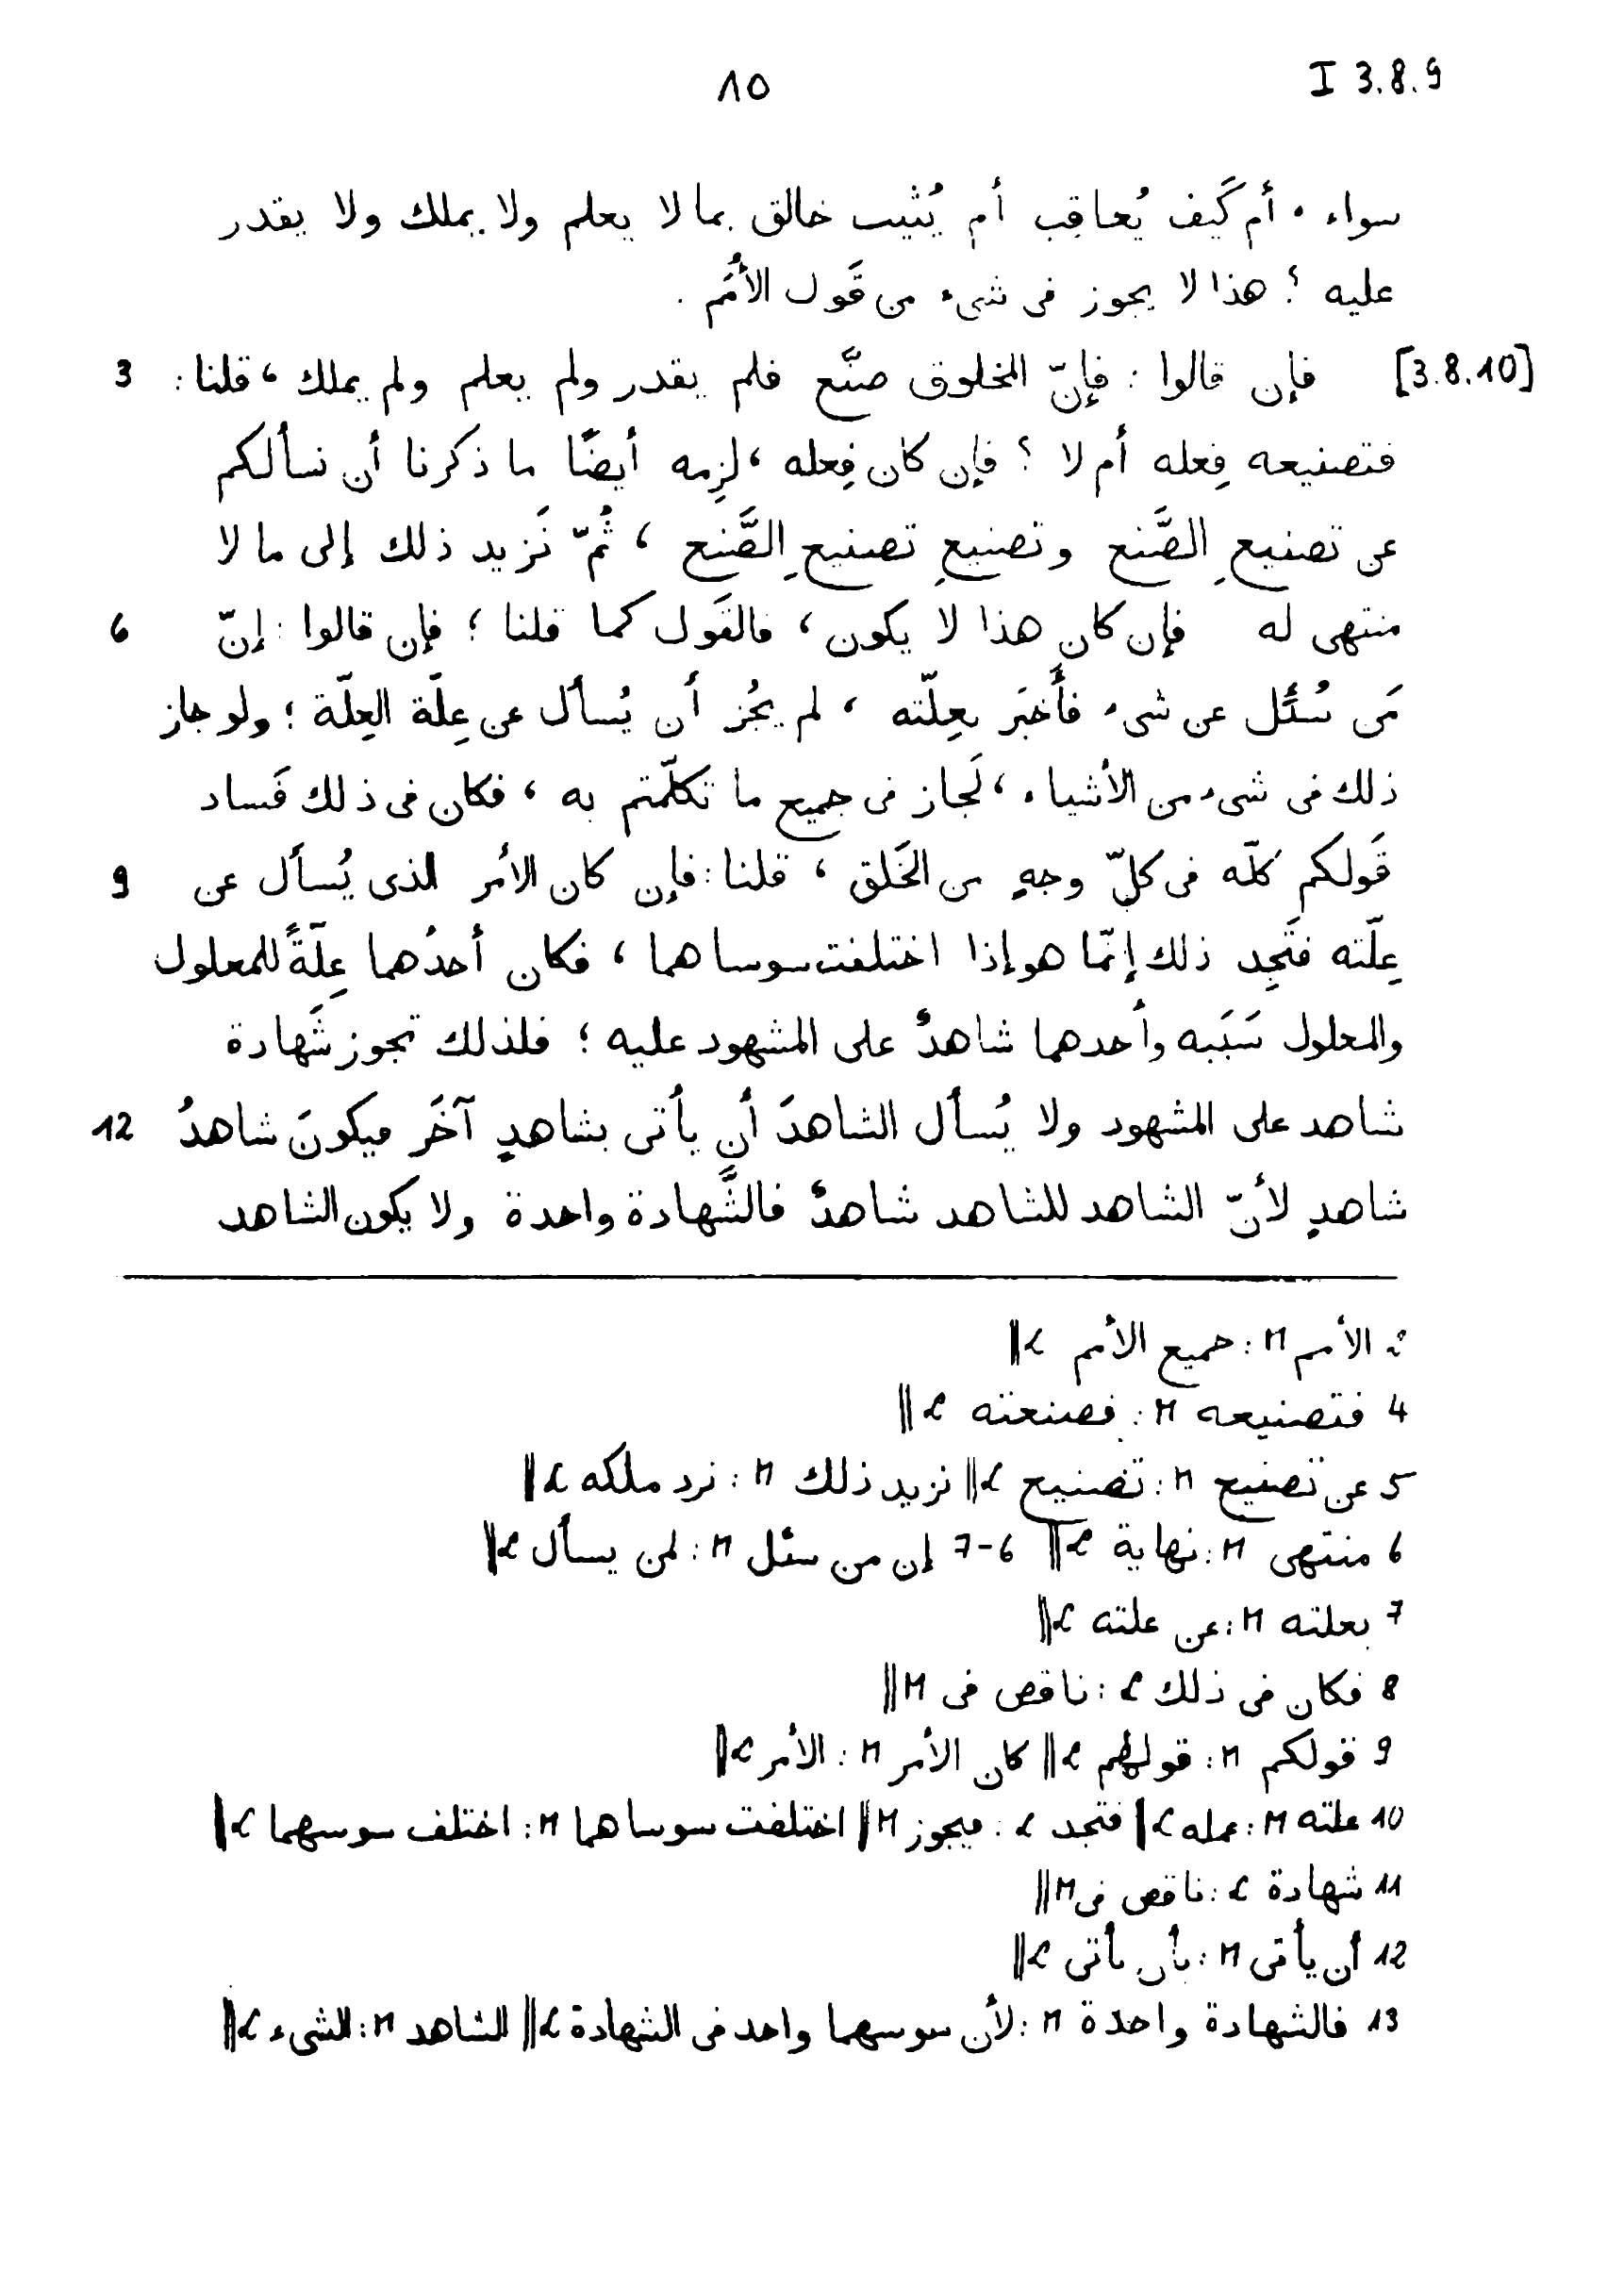 10
I 3.8.9
سواء ، أم كَيف يُعاقِب أم يُثيب خالق بما لا يعلم ولا يملك ولا يقدر
عليه ؟ هذا لا يجوز فى شىء من قَول الأُمَم .
[3.8.10] فإن قالوا : فإنّ المخلوق صنَّع فلم يقدر ولم يعلم ولم يملك ، قلنا : 3
فتصنيعه فِعله أم لا ؟ فإن كان فِعله ، لزِمه أيضًا ما ذكرنا أن نسألكم
عن تصنيعِ الصَّنع وتصنيعِ تصنيعِ الصَّنع ، ثُمّ نَزيد ذلك إلى ما لا
منتهى له فإن كان هذا لا يكون ، فالقَول كما قلنا ؛ فإن قالوا : إنّ 6
مَن سُئل عن شىء فأَخبَر بعِلّته ، لم يجُز أن يُسأل عن عِلّة العِلّة ؛ ولو جاز
ذلك فى شىء من الأشياء ، لَجاز فى جميع ما تكلّمتم به ، فكان فى ذلك فَساد
قَولكم كلّه فى كلّ وجهٍ من الخَلق ، قلنا : فإن كان الأمر الذى يُسأل عن 9
عِلّته فتَجِد ذلك إنّما هو إذا اختلفت سوساهما ، فكان أحدُهما عِلّةً للمعلول
والمعلول سَبَبه وأحدهما شاهدٌ على المشهود عليه ؛ فلذلك تجوز شَهادة
شاهد على المشهود ولا يُسأل الشاهدَ أن يأتى بشاهدٍ آخَر فيكونَ شاهدُ 12
شاهدٍ لأنّ الشاهد للشاهد شاهدٌ فالشَّهادة واحدة ولا يكون الشاهد
2 الأمم M : جميع الأمم L ||
4 فتصنيعه M : فصنعته L ||
5 عن تصنيع M : تصنيع L || نزيد ذلك M : نرد ملكه L ||
6 منتهى M : نهاية L || 6-7 إن من سئل M : لمن يسأل L ||
7 بعلته M : عن علته L ||
8 فكان فى ذلك L : ناقص فى M ||
9 قولكم M : قولهم L || كان الأمر M : الأمر L ||
10 علته M : عمله L || فتجد L : فيجوز M || اختلفت سوساهما M : اختلف سوسهما L ||
11 شهادة L : ناقص فى M ||
12 أن يأتى M : بأن يأتى L ||
13 فالشهادة واحدة M : لأن سوسهما واحد فى الشهادة L || الشاهد M : الشىء L ||